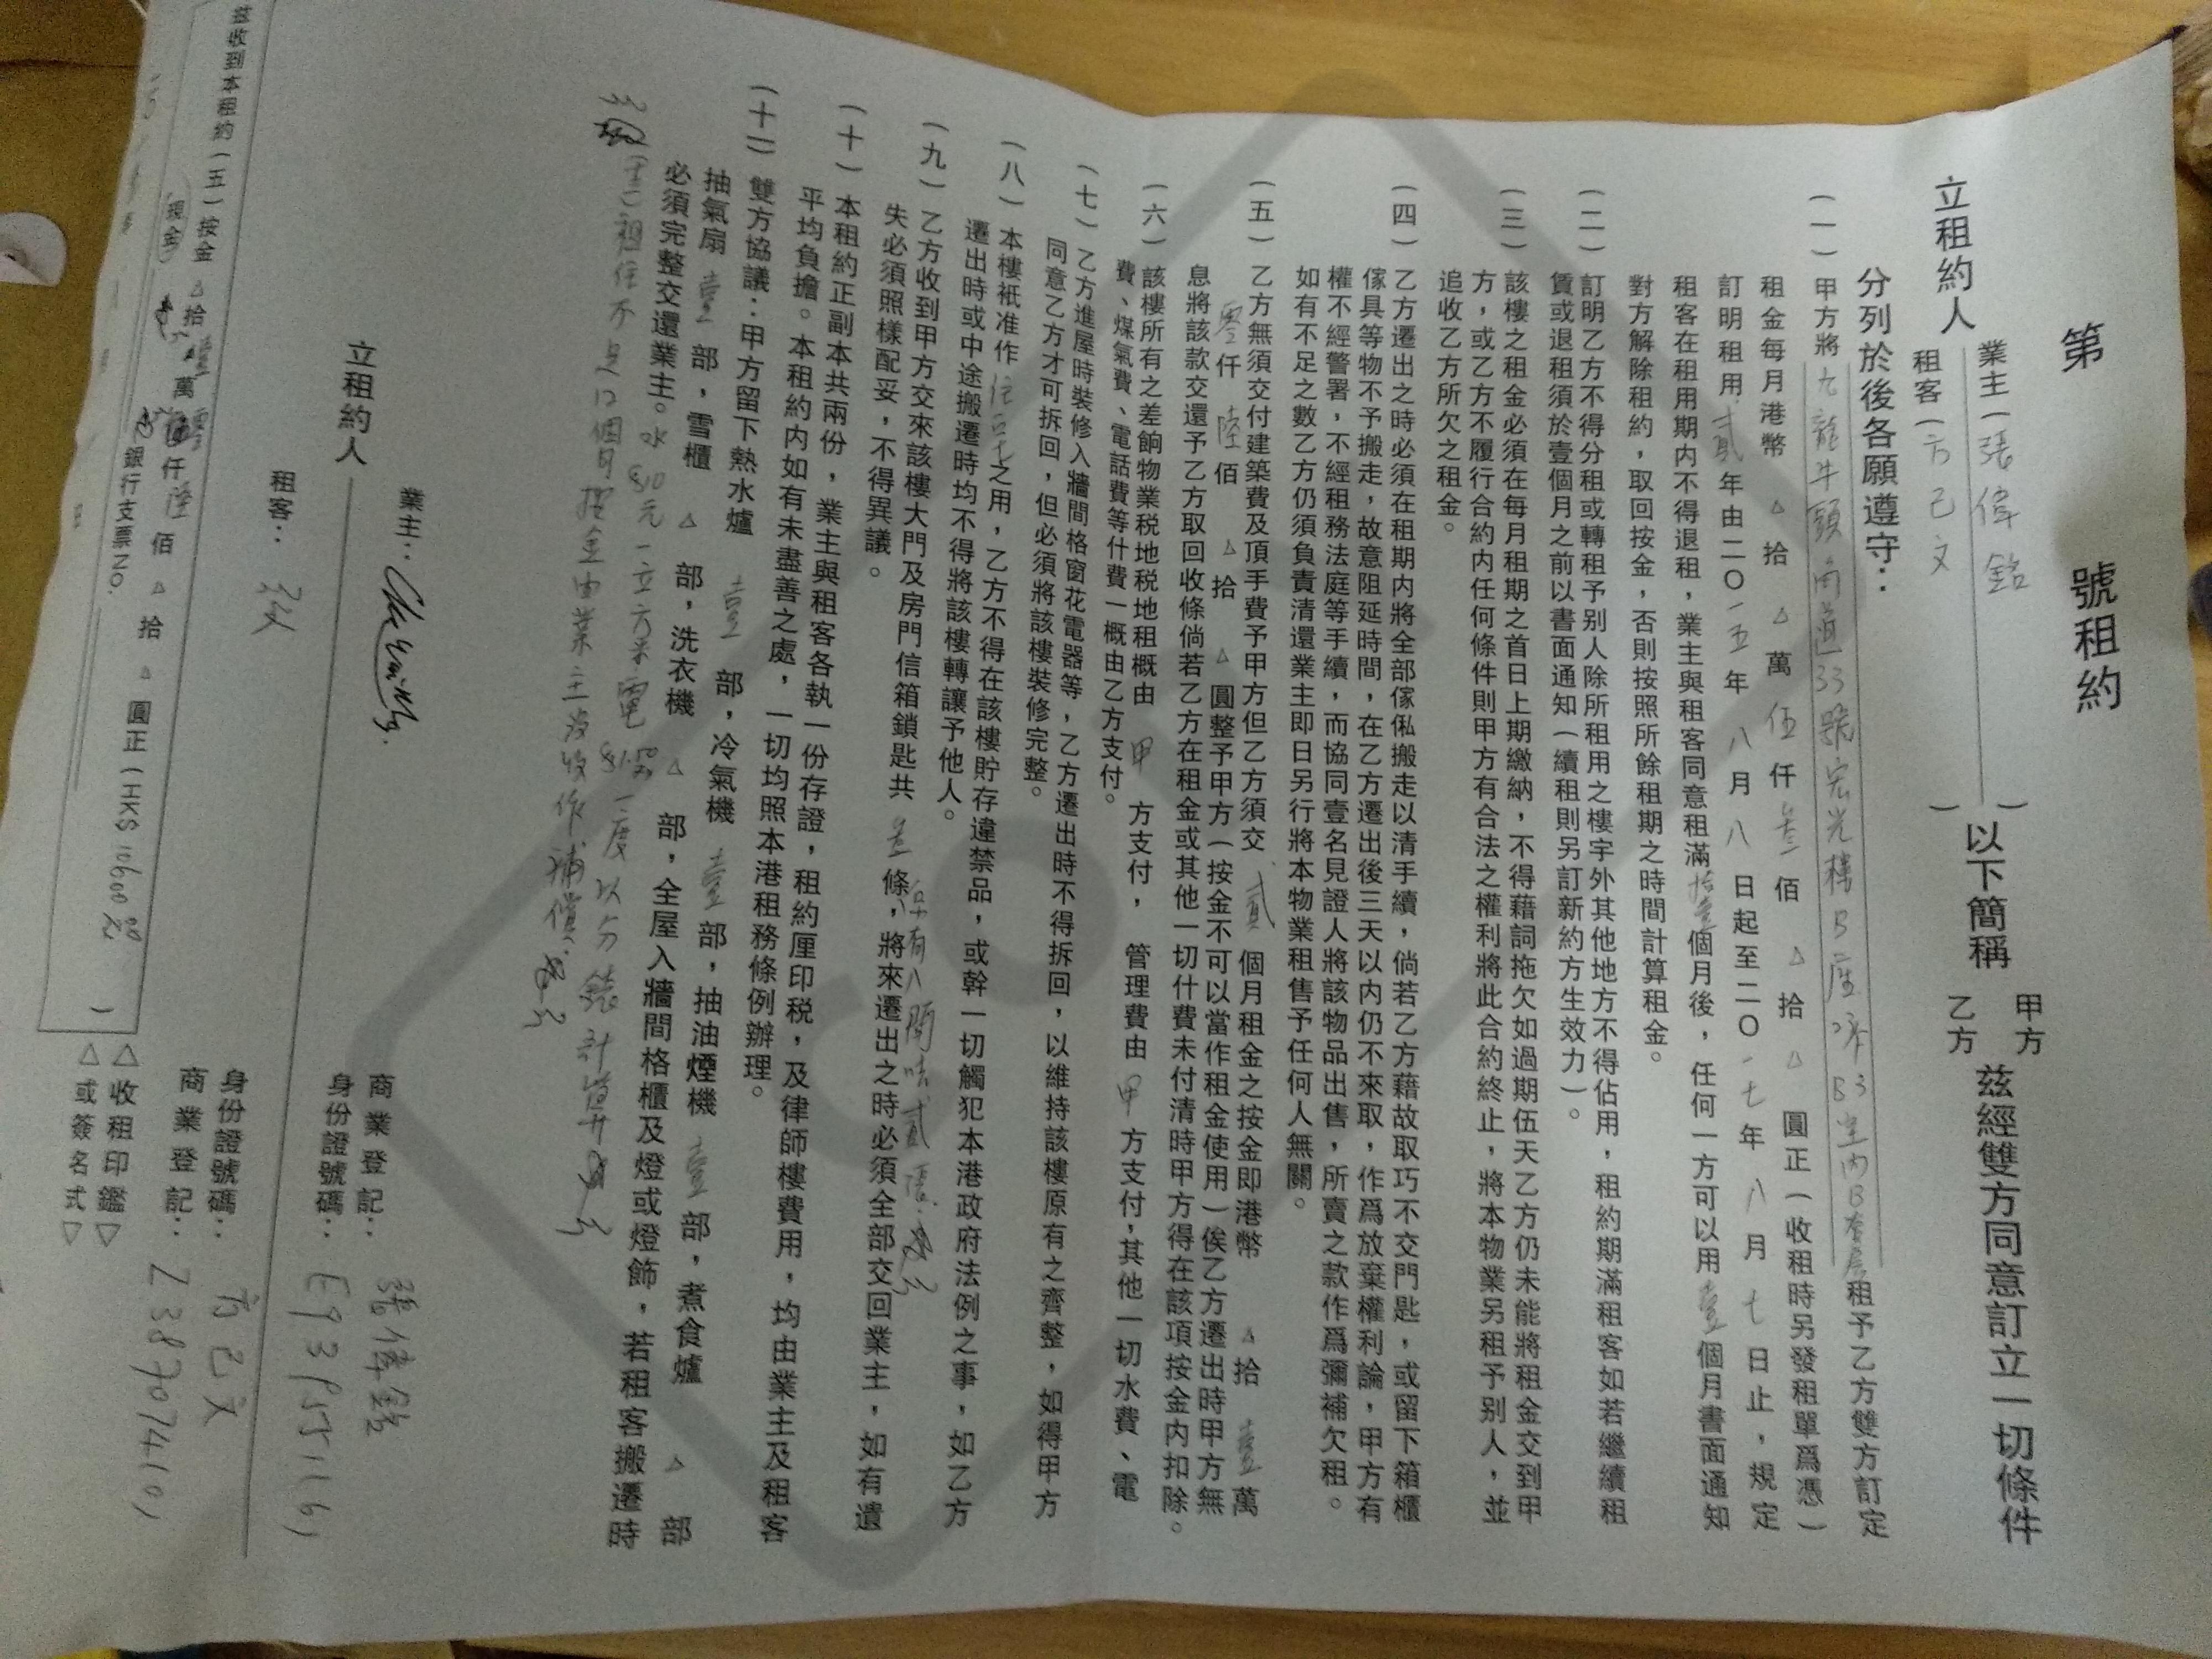 第 號租約
立租約人 業主(張偉銘 ) 以下簡稱 甲方 茲經雙方同意訂立一切條件
租客(方己文 ) 乙方
分列於後各願遵守:
(一)甲方將九龍牛頭角道33號宏光樓B座 B3室內B套房租予乙方雙方訂定
租金每月港幣 △ 拾 △ 萬 伍 仟 叁 佰 △ 拾 △ 圓正(收租時另發租單爲憑)
訂明租用貳年由二〇一五年 八 月 八 日起至二〇一七年 八 月 七 日止,規定
租客在租用期內不得退租,業主與租客同意租滿拾壹個月後,任何一方可以用壹個月書面通知
對方解除租約,取回按金,否則按照所餘租期之時間計算租金。
(二)訂明乙方不得分租或轉租予別人除所租用之樓宇外其他地方不得佔用,租約期滿租客如若繼續租
賃或退租須於壹個月之前以書面通知(續租則另訂新約方生效力)。
(三)該樓之租金必須在每月租期之首日上期繳納,不得藉詞拖欠如過期伍天乙方仍未能將租金交到甲
方,或乙方不履行合約内任何條件則甲方有合法之權利將此合約終止,將本物業另租予別人,並
追收乙方所欠之租金。
(四)乙方遷出之時必須在租期内將全部傢俬搬走以清手續,倘若乙方藉故取巧不交門匙,或留下箱櫃
傢具等物不予搬走,故意阻延時間,在乙方遷出後三天以内仍不來取,作爲放棄權利論,甲方有
權不經警署,不經租務法庭等手續,而協同壹名見證人將該物品出售,所賣之款作爲彌補欠租。
如有不足之數乙方仍須負責清還業主即日另行將本物業租售予任何人無關。
(五)乙方無須交付建築費及頂手費予甲方但乙方須交 貳 個月租金之按金即港幣 △ 拾 壹 萬
零 仟 陸 佰 △ 拾 △ 圓整予甲方(按金不可以當作租金使用)俟乙方遷出時甲方無
息將該款交還予乙方取回收條倘若乙方在租金或其他一切什費未付清時甲方得在該項按金内扣除。
(六)該樓所有之差餉物業税地税地租概由 甲 方支付, 管理費由 甲 方支付;其他一切水費、電
費、煤氣費、電話費等什費一概由乙方支付。
(七)乙方進屋時裝修入牆間格窗花電器等,乙方遷出時不得拆回,以維持該樓原有之齊整,如得甲方
同意乙方才可拆回,但必須將該樓裝修完整。
(八)本樓衹准作住宅之用,乙方不得在該樓貯存違禁品,或幹一切觸犯本港政府法例之事,如乙方
遷出時或中途搬遷時均不得將該樓轉讓予他人。
(九)乙方收到甲方交來該樓大門及房門信箱鎖匙共 叁 條,將來遷出之時必須全部交回業主,如有遺
失必須照樣配妥,不得異議。
(十)本租約正副本共兩份,業主與租客各執一份存證,租約厘印税,及律師樓費用,均由業主及租客
平均負擔。本租約内如有未盡善之處,一切均照本港租務條例辦理。
(十一)雙方協議:甲方留下熱水爐 壹 部,冷氣機 壹 部,抽油煙機 壹 部,煮食爐 △ 部
抽氣扇 壹 部,雪櫃 △ 部,洗衣機 △ 部,全屋入牆間格櫃及燈或燈飾,若租客搬遷時
必須完整交還業主。水$10元一立方米電$1.50一度以分錶計算
租住不足12個月按金由業主沒收作補償
立租約人 業主:
商業登記: 張偉銘
身份證號碼: E931551(6)
租客:
身份證號碼: 方己文
商業登記: Z387074(0)
茲收到本租約(五)按金 △ 拾 壹 萬 零 仟 陸 佰 △ 拾 △ 圓正(HK$ 10600 )
現金 銀行支票NO.
△收租印鑑▽
△或簽名式▽